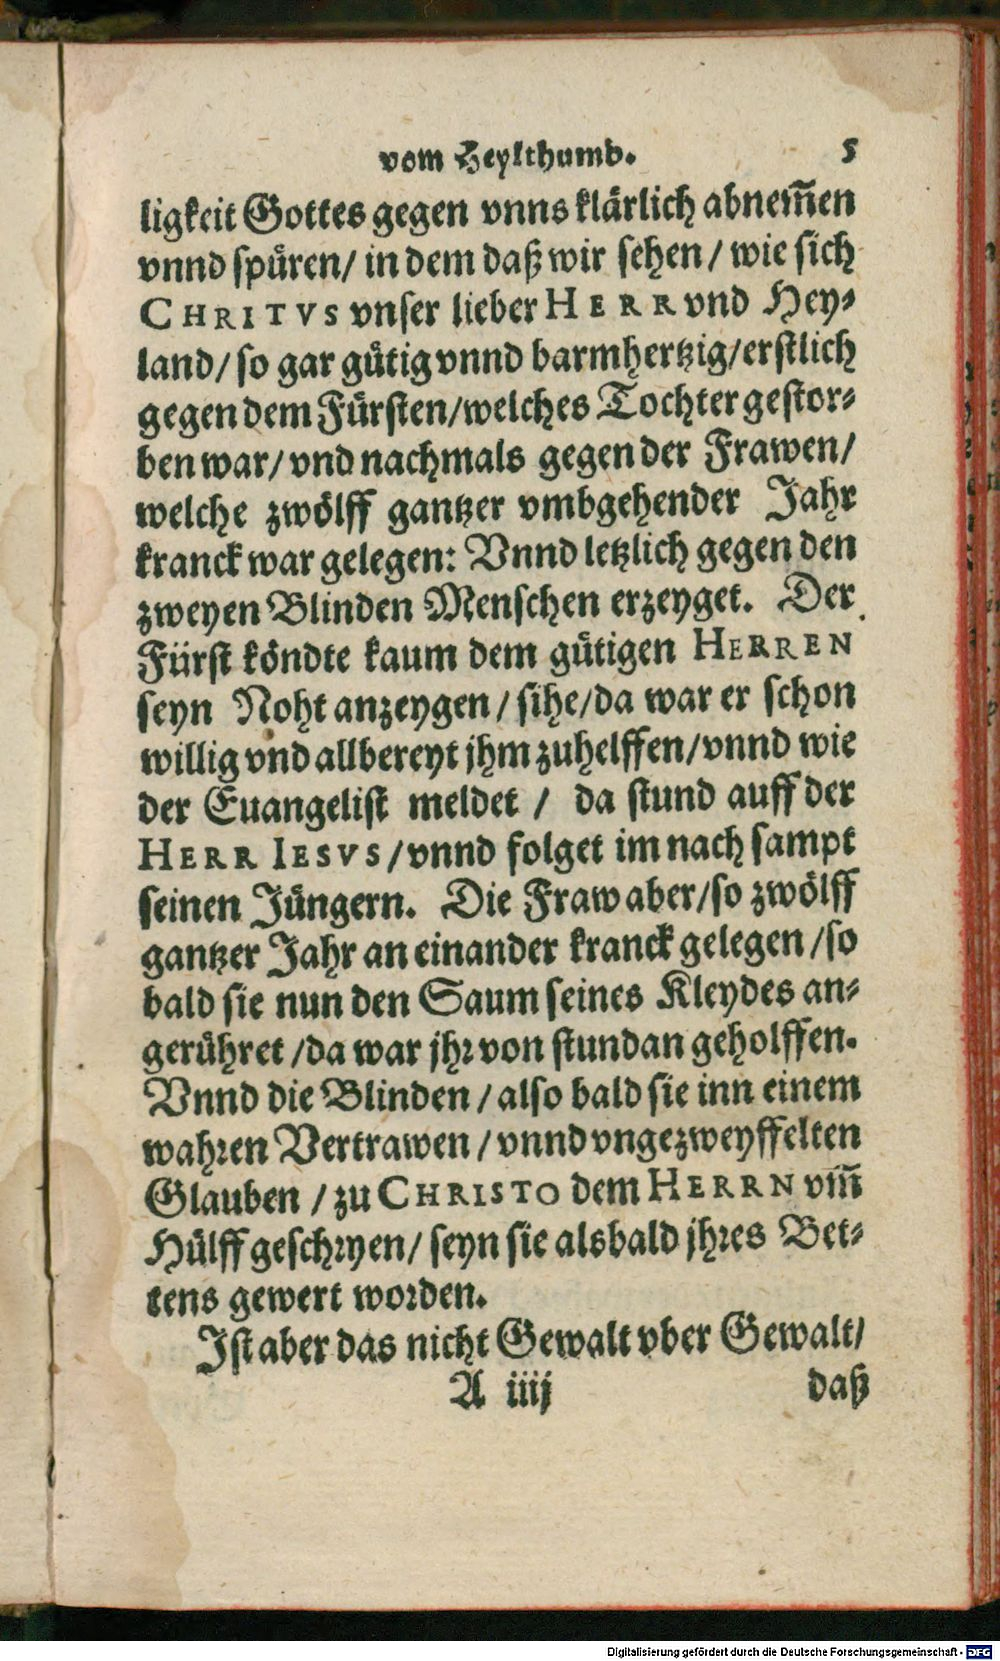 vom Heylthumb. 5
ligkeit Gottes gegen vnns klärlich abnem̃en
vnnd spüren/ in dem daß wir sehen/ wie sich
CHRITVS vnser lieber HERR vnd Hey⸗
land/ so gar gütig vnnd barmhertzig/ erstlich
gegen dem Fürsten/ welches Tochter gestor⸗
ben war/ vnd nachmals gegen der Frawen/
welche zwölff gantzer vmbgehender Jahr
kranck war gelegen: Vnnd letzlich gegen den
zweyen Blinden Menschen erzeyget. Der
Fürst köndte kaum dem gütigen HERREN
seyn Noht anzeygen/ sihe/ da war er schon
willig vnd allbereyt jhm zuhelffen/ vnnd wie
der Euangelist meldet / da stund auff der
HERR IESVS/ vnnd folget im nach sampt
seinen Jüngern. Die Fraw aber/ so zwölff
gantzer Jahr an einander kranck gelegen/ so
bald sie nun den Saum seines Kleydes an⸗
gerühret / da war jhr von stundan geholffen.
Vnnd die Blinden / also bald sie inn einem
wahren Vertrawen / vnnd vngezweyffelten
Glauben / zu CHRISTO dem HERRN vm̃
Hülff geschryen/ seyn sie alsbald jhres Bet⸗
tens gewert worden.
Ist aber das nicht Gewalt vber Gewalt/
A iiij daß
Digitalisierung gefördert durch die Deutsche Forschungsgemeinschaft - DFG